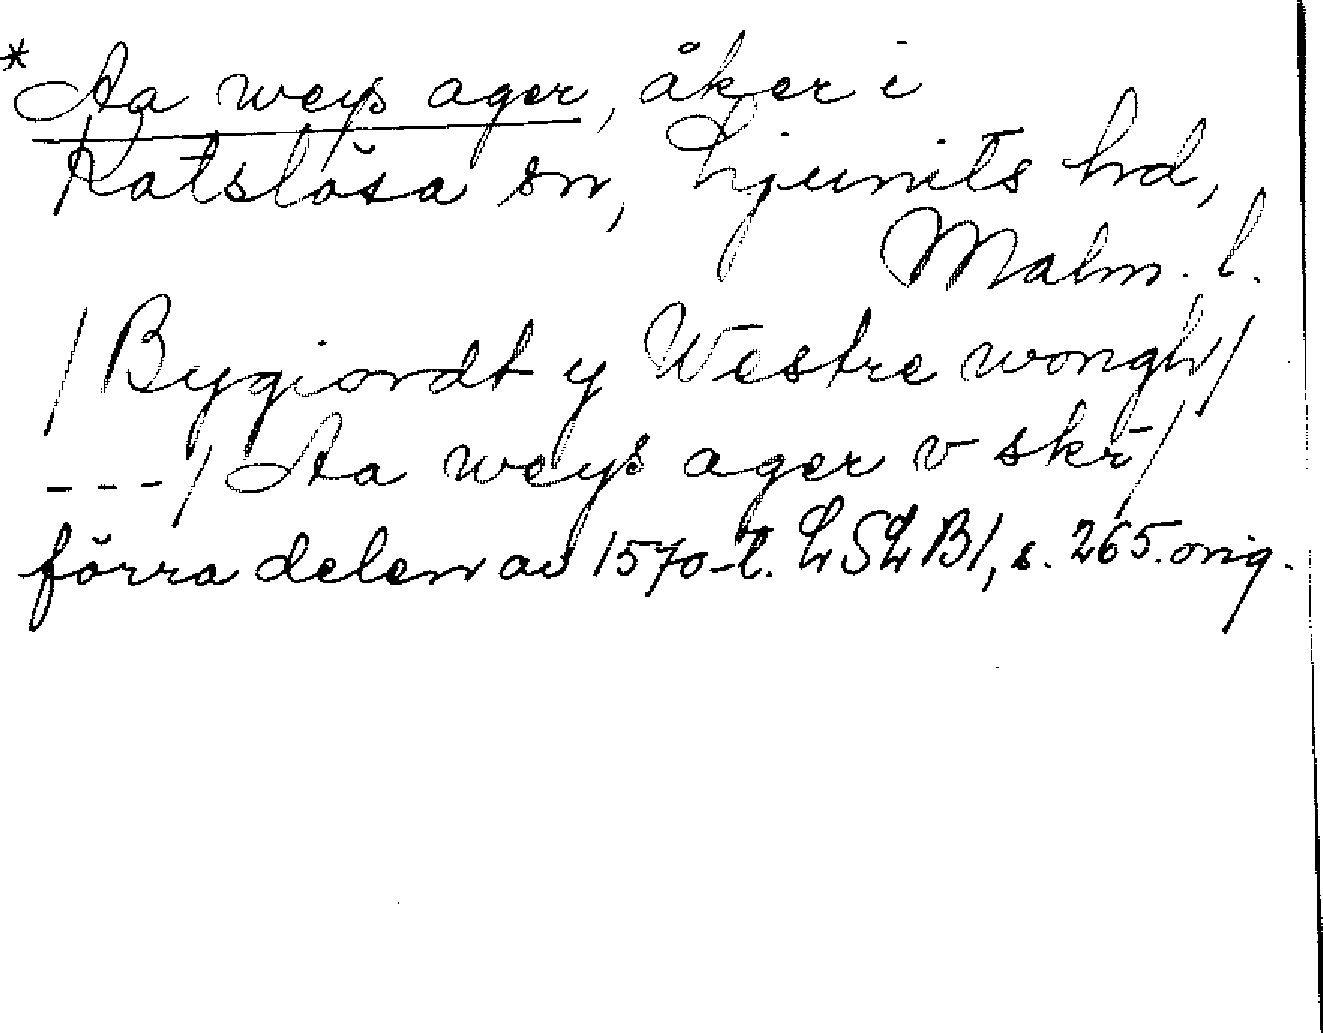 *Aa weys ager, åker i
Katslösa sn, Ljunits hd,
Malm. l.
/Bygiordt y Westre wongh/
---/Aa weys ager v skr/
förra delen av 1570-t. LSLB1, s. 265. orig.